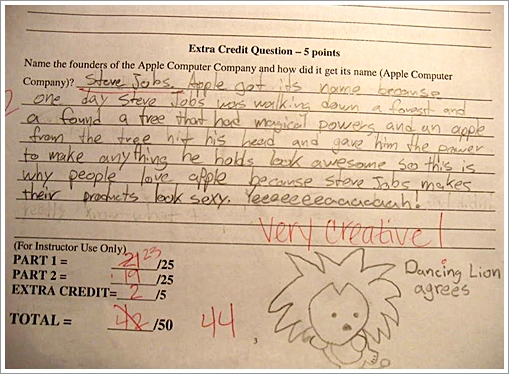 Extra Credit Question – 5 points
Name the founders of the Apple Computer Company and how did it get its name (Apple Computer
Company)? Steve Jobs. Apple got its name because
one day Steve Jobs was walking down a forest and
2 a found a tree that had magical powers and an apple
from the tree hit his head and gave him the power
to make anything he holds look awesome so this is
why people love apple because Steve Jobs makes
their products look sexy. Yeeeeeeeaaaaaaah!
Very creative!
(For Instructor Use Only)
PART 1 = 21 23 /25
PART 2 = 19 /25
EXTRA CREDIT= 2 /5
TOTAL = 42 /50 44
Dancing Lion
agrees
3